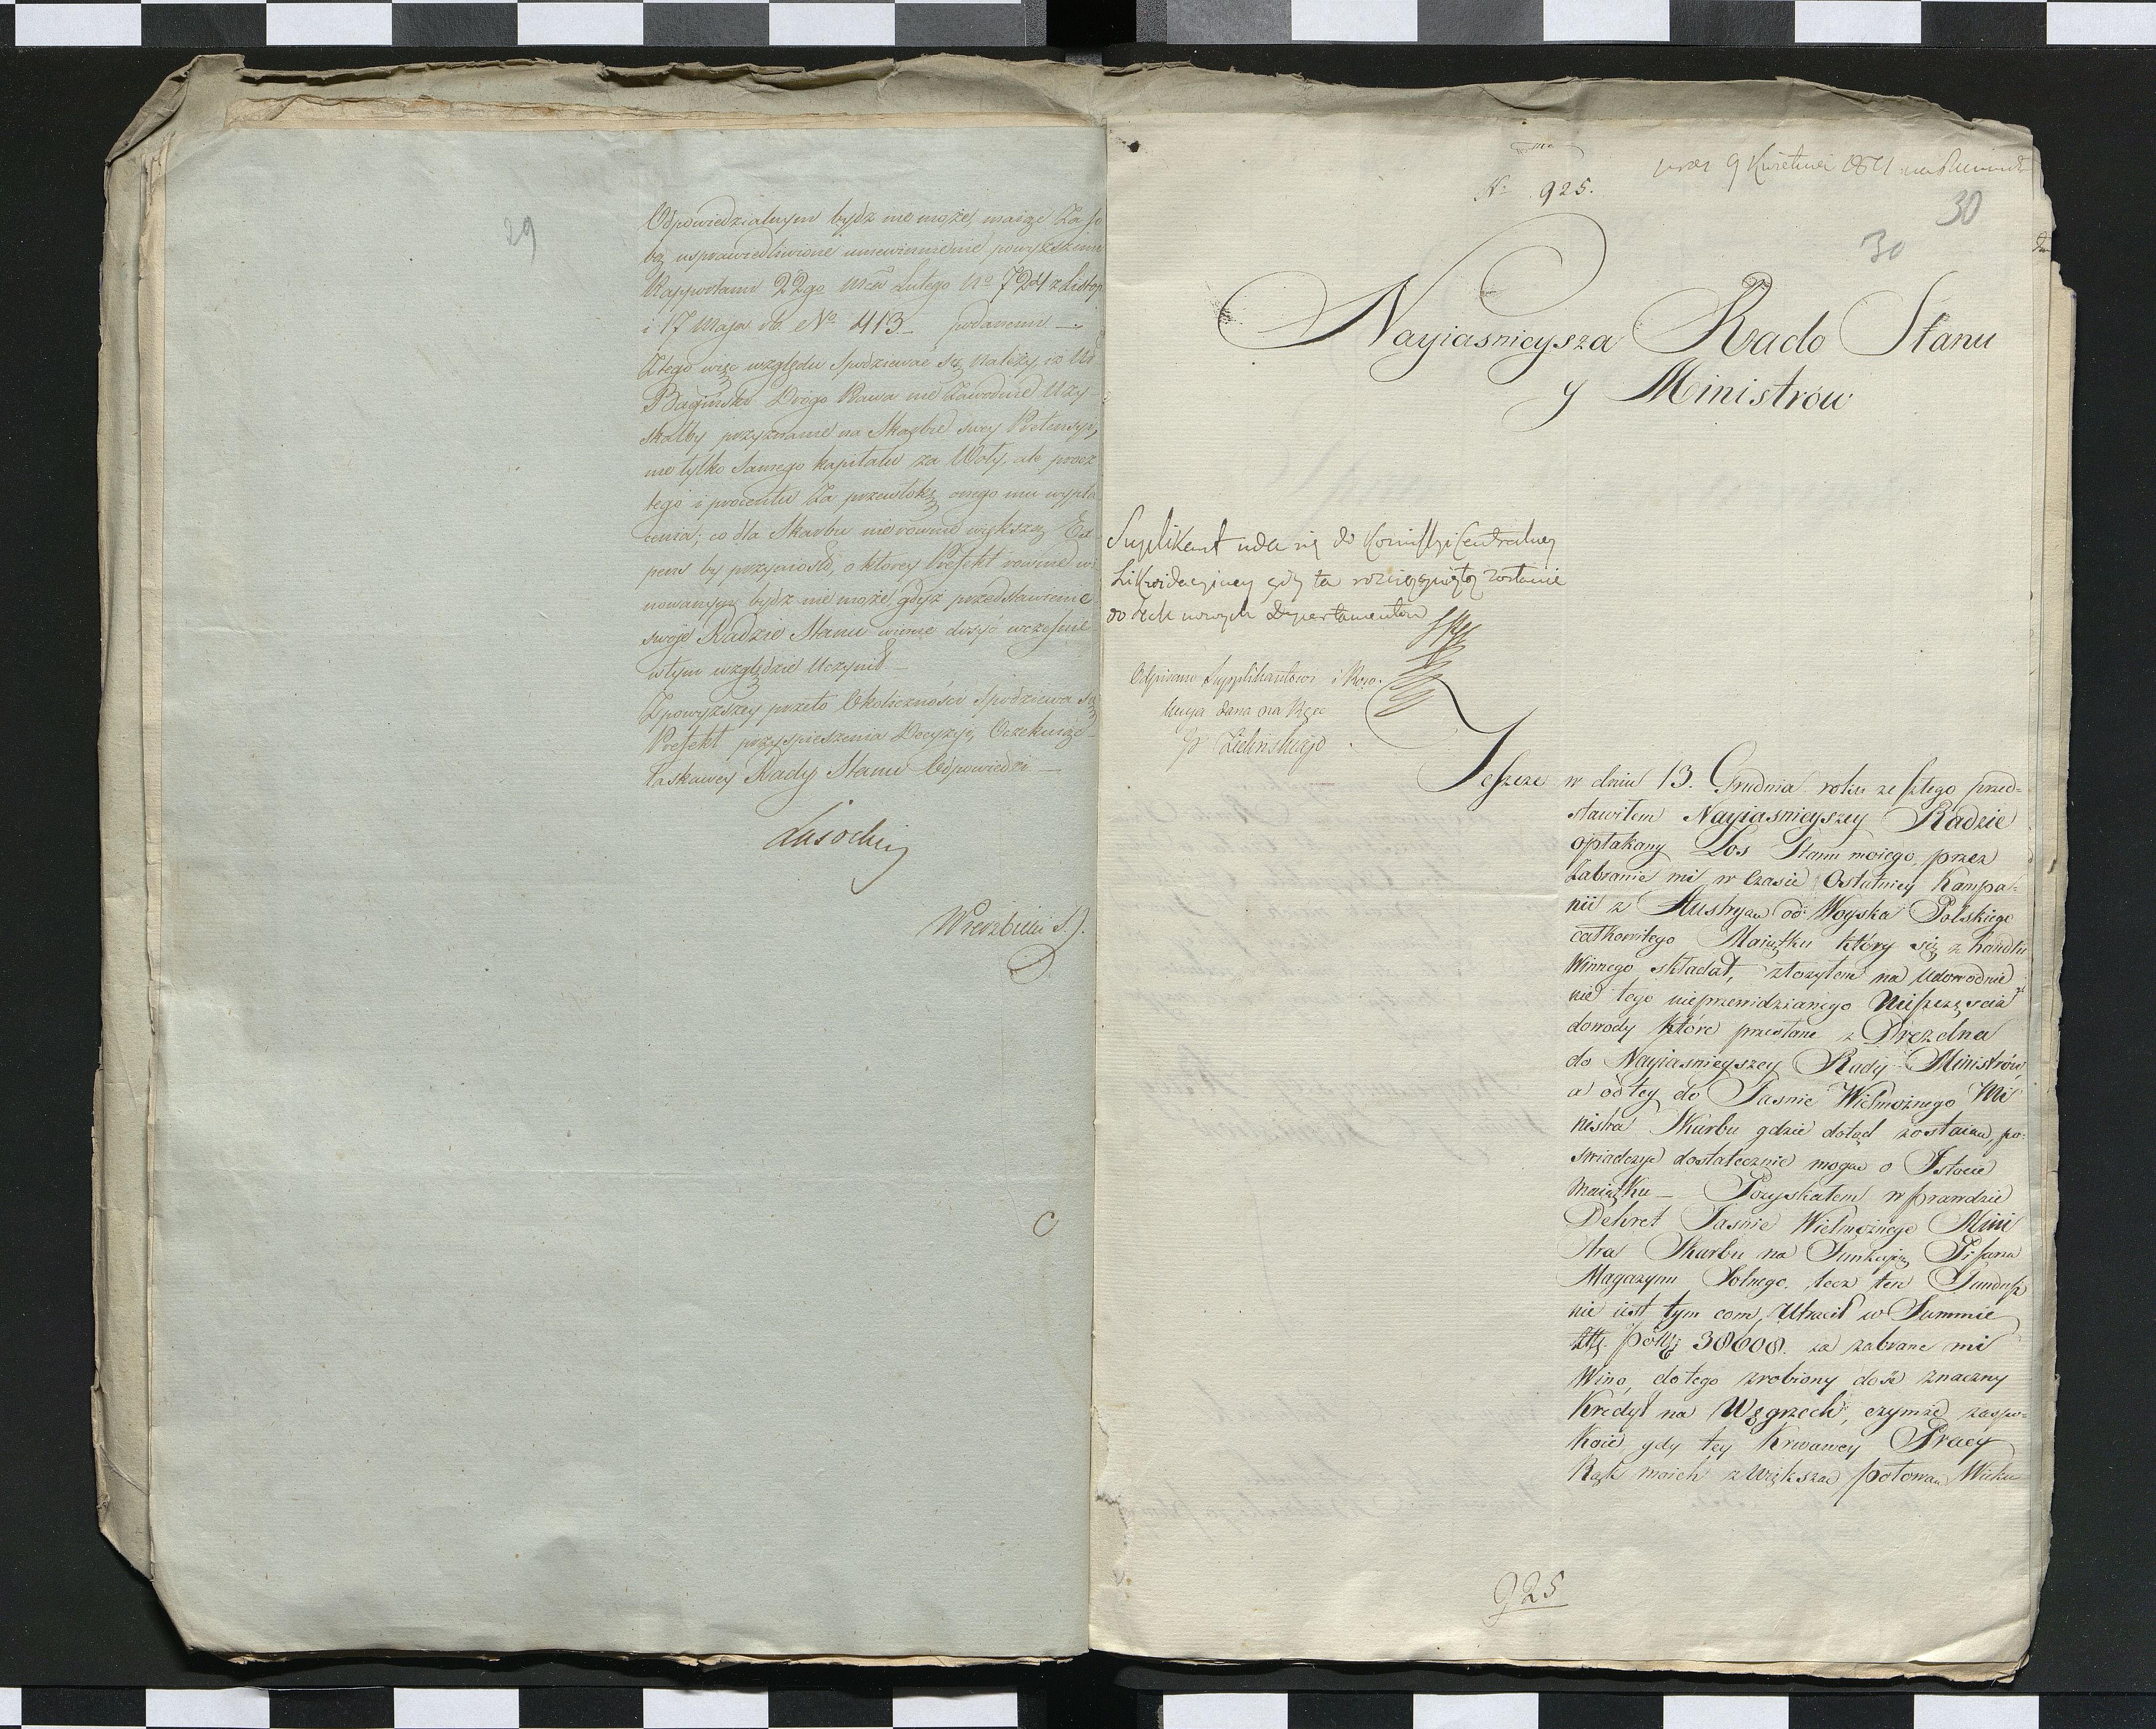 29
Odpowiedzialnym bydz nie może, maiąc Za so
bą usprawiedliwione uniewinnienie powyższemi
Rapportami 22go Mca Lutego No 724 z Listop
i 17 Maja rb. No 413 podanemi —
Ztego więc względu Spodziewać się należy, iż Ur
Bagiński Drogą Prawa nie Zawodnie Uzy
skałby przyznanie na Skarbie swey Pretensyi,
nie tylko Samego kapitału za Woły, ale procz
tego i procentu Za przewłokę onego mu wypła
cenia; co dla Skarbu nierównie większą Ex
pens by przyniosło, o którey Prefekt rownie wi
nowanym bydz nie może, gdyż przedstawienie
swoje Radzie Stanu wcześnie
w tym względzie Uczynił —
Z powyższey przeto Okoliczności Spodziewa się
Prefekt przyspieszenia Decyzyi, Oczekuiąc
Łaskawey Rady Stanu Odpowiedzi —
Lasocki
Wierzbicki S.J.
C
No 925.
9 Kwietnia 1811
30
30
Nayiasnieysza Rado Stanu
y Ministrów
Suplikant uda się do Komissyi Centralney
Likwidacyiney gdy ta rozciągniętą zostanie
do tych nowych Departamentów
Odpisano Supplikantowi i Rezo-
lucya dana na Ręce
Zielińskiego.
Jeszcze w dniu 13. Grudnia roku zeszłego przed=
stawiłem Nayiasnieyszey Radzie
opłakany Los Stanu moiego, przez
Zabranie mi w Czasie Ostatniey Kampa=
nii z Austryą od Woyska Polskiego
całkowitego Maiątku który się z handlu
Winnego składał, złożyłem na Udowodnie
nie tego nieprzewidzianego Nieszczęścia
dowody które przesłane z Drezdna
do Nayiasnieyszey Rady Ministrów,
a od tey do Jasnie Wielmożnego Mi
nistra Skarbu gdzie dotąd zostaią, po=
swiadczyć dostatecznie mogą o Istocie
Maiątku — Pozyskałem w prawdzie
Dekret Jasnie Wielmożnego Mini
stra Skarbu na Funkcyią Pisarza
Magazynu Solnego, lecz ten Fundusz
nie iest tym com Utracił w Summie
Złtt. pols: 38608. za zabrane mi
Wino, do tego zrobiony dość znaczny
Kredyt na Węgrzech, czymże zaspo=
koić, gdy tey Krwawey Pracy
Rąk moich z większą połową Wieku
925